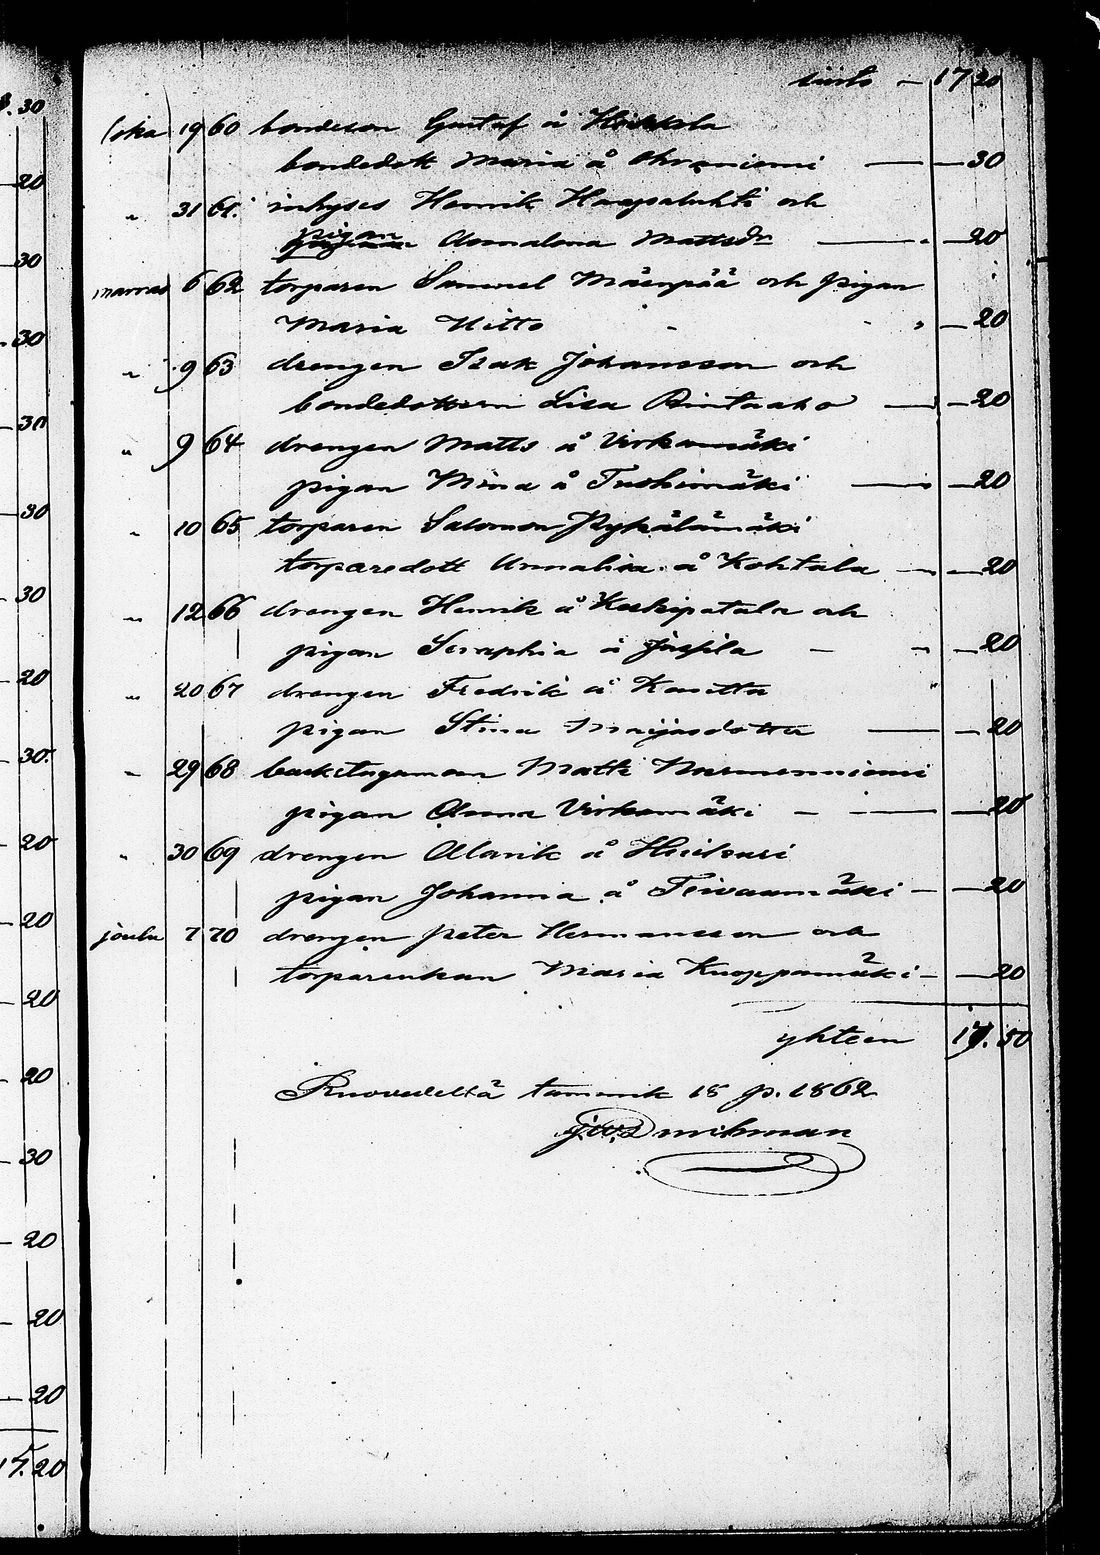 30
20
30
30
30
30
30
20
30
20
20
20
20
30
20
20
20
17.20
siirto — 17 20
loka 19 60 bondeson Gustaf å Heikkola
bondedott Maria å Ohraniemi — 30
" 31 61. inhyses Henrik Haapalahti och
pigan Annalena Mattsdr — 20
marras 6 62 torparen Samuel Mäenpää och pigan
Maria Hitto " — 20
" 9 63 drengen Isak Johansson och
bondedottern Lisa Rintaaho — 20
" 9 64 drengen Matts å Virkamäki
pigan Mina å Tuohimäki — 20
" 10 65 torparen Salomon Pykälämäki
torparedott Annalisa å Kohtala — 20
" 12 66 drengen Henrik å Keskipatala och
pigan Seraphia å Jäspilä — 20
" 20 67 drengen Fredrik å
pigan Stina Maijasdotter — 20
" 29 68 Matts
pigan Anna Virkamäki — 20
" 30 69 drengen Alarik å
pigan Johanna å Teivaamäki — 20
joulu 7 70 drengen Peter Hermansson och
torparenkan Maria Knuppamäki — 20
yhteen 19.50
Ruovedeltä tammik 18 p. 1862